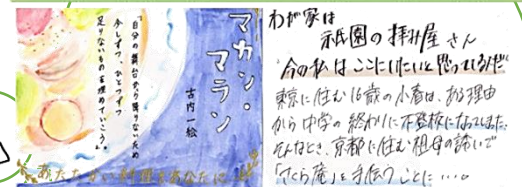 マカン・マラン
古内一絵
「自分の舞台から降りないため
少しずつ、ひとつずつ
足りないものを埋めていこう。」
あたたかい料理をあなたに
わが家は
祇園の拝み屋さん
"今の私はここにいたいと思っているんだ"
東京に住む16歳の小春は、ある理由
から中学の終わりに不登校になってしまた。
そんなとき、京都に住む祖母の誘いで
「さくら庵」を手伝うことに…。